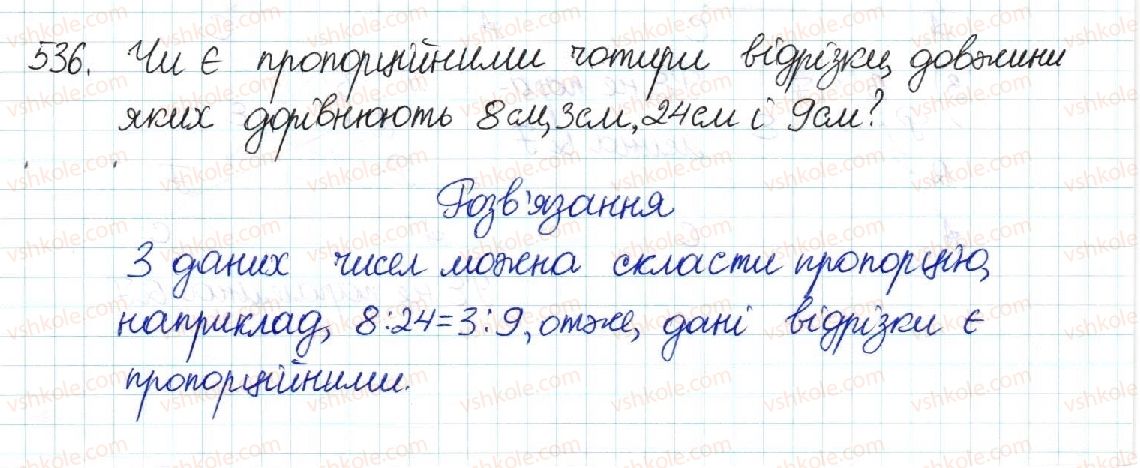 536. Чи є пропорційними чотири відрізки, довжини
яких дорівнюють 8см, 3см, 24см і 9см?
Розв'язання
З даних чисел можна скласти пропорцію,
наприклад, 8:24=3:9, отже, дані відрізки є
пропорційними.